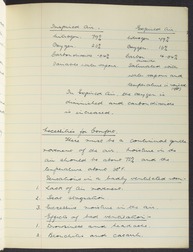 Inspired Air. Expired Air.
Nitrogen 79% Nitrogen 79%
Oxygen Oxygen 16%
Carbon
Variable water vapour Saturated with
water vapour and
temperature is raised
In Expired Air the oxygen is
diminished and carbon dioxide
is increased.
Essentials for Comfort.
There must be a continual gentle
movement of the air. Moisture in the
air should be about and the
temperature about
Conditions in a badly ventilated room
1. Lack of air movement
2. Poor
3. Excessive moisture in the air
Effects of bad ventilation
1. Drowsiness and headache
2.